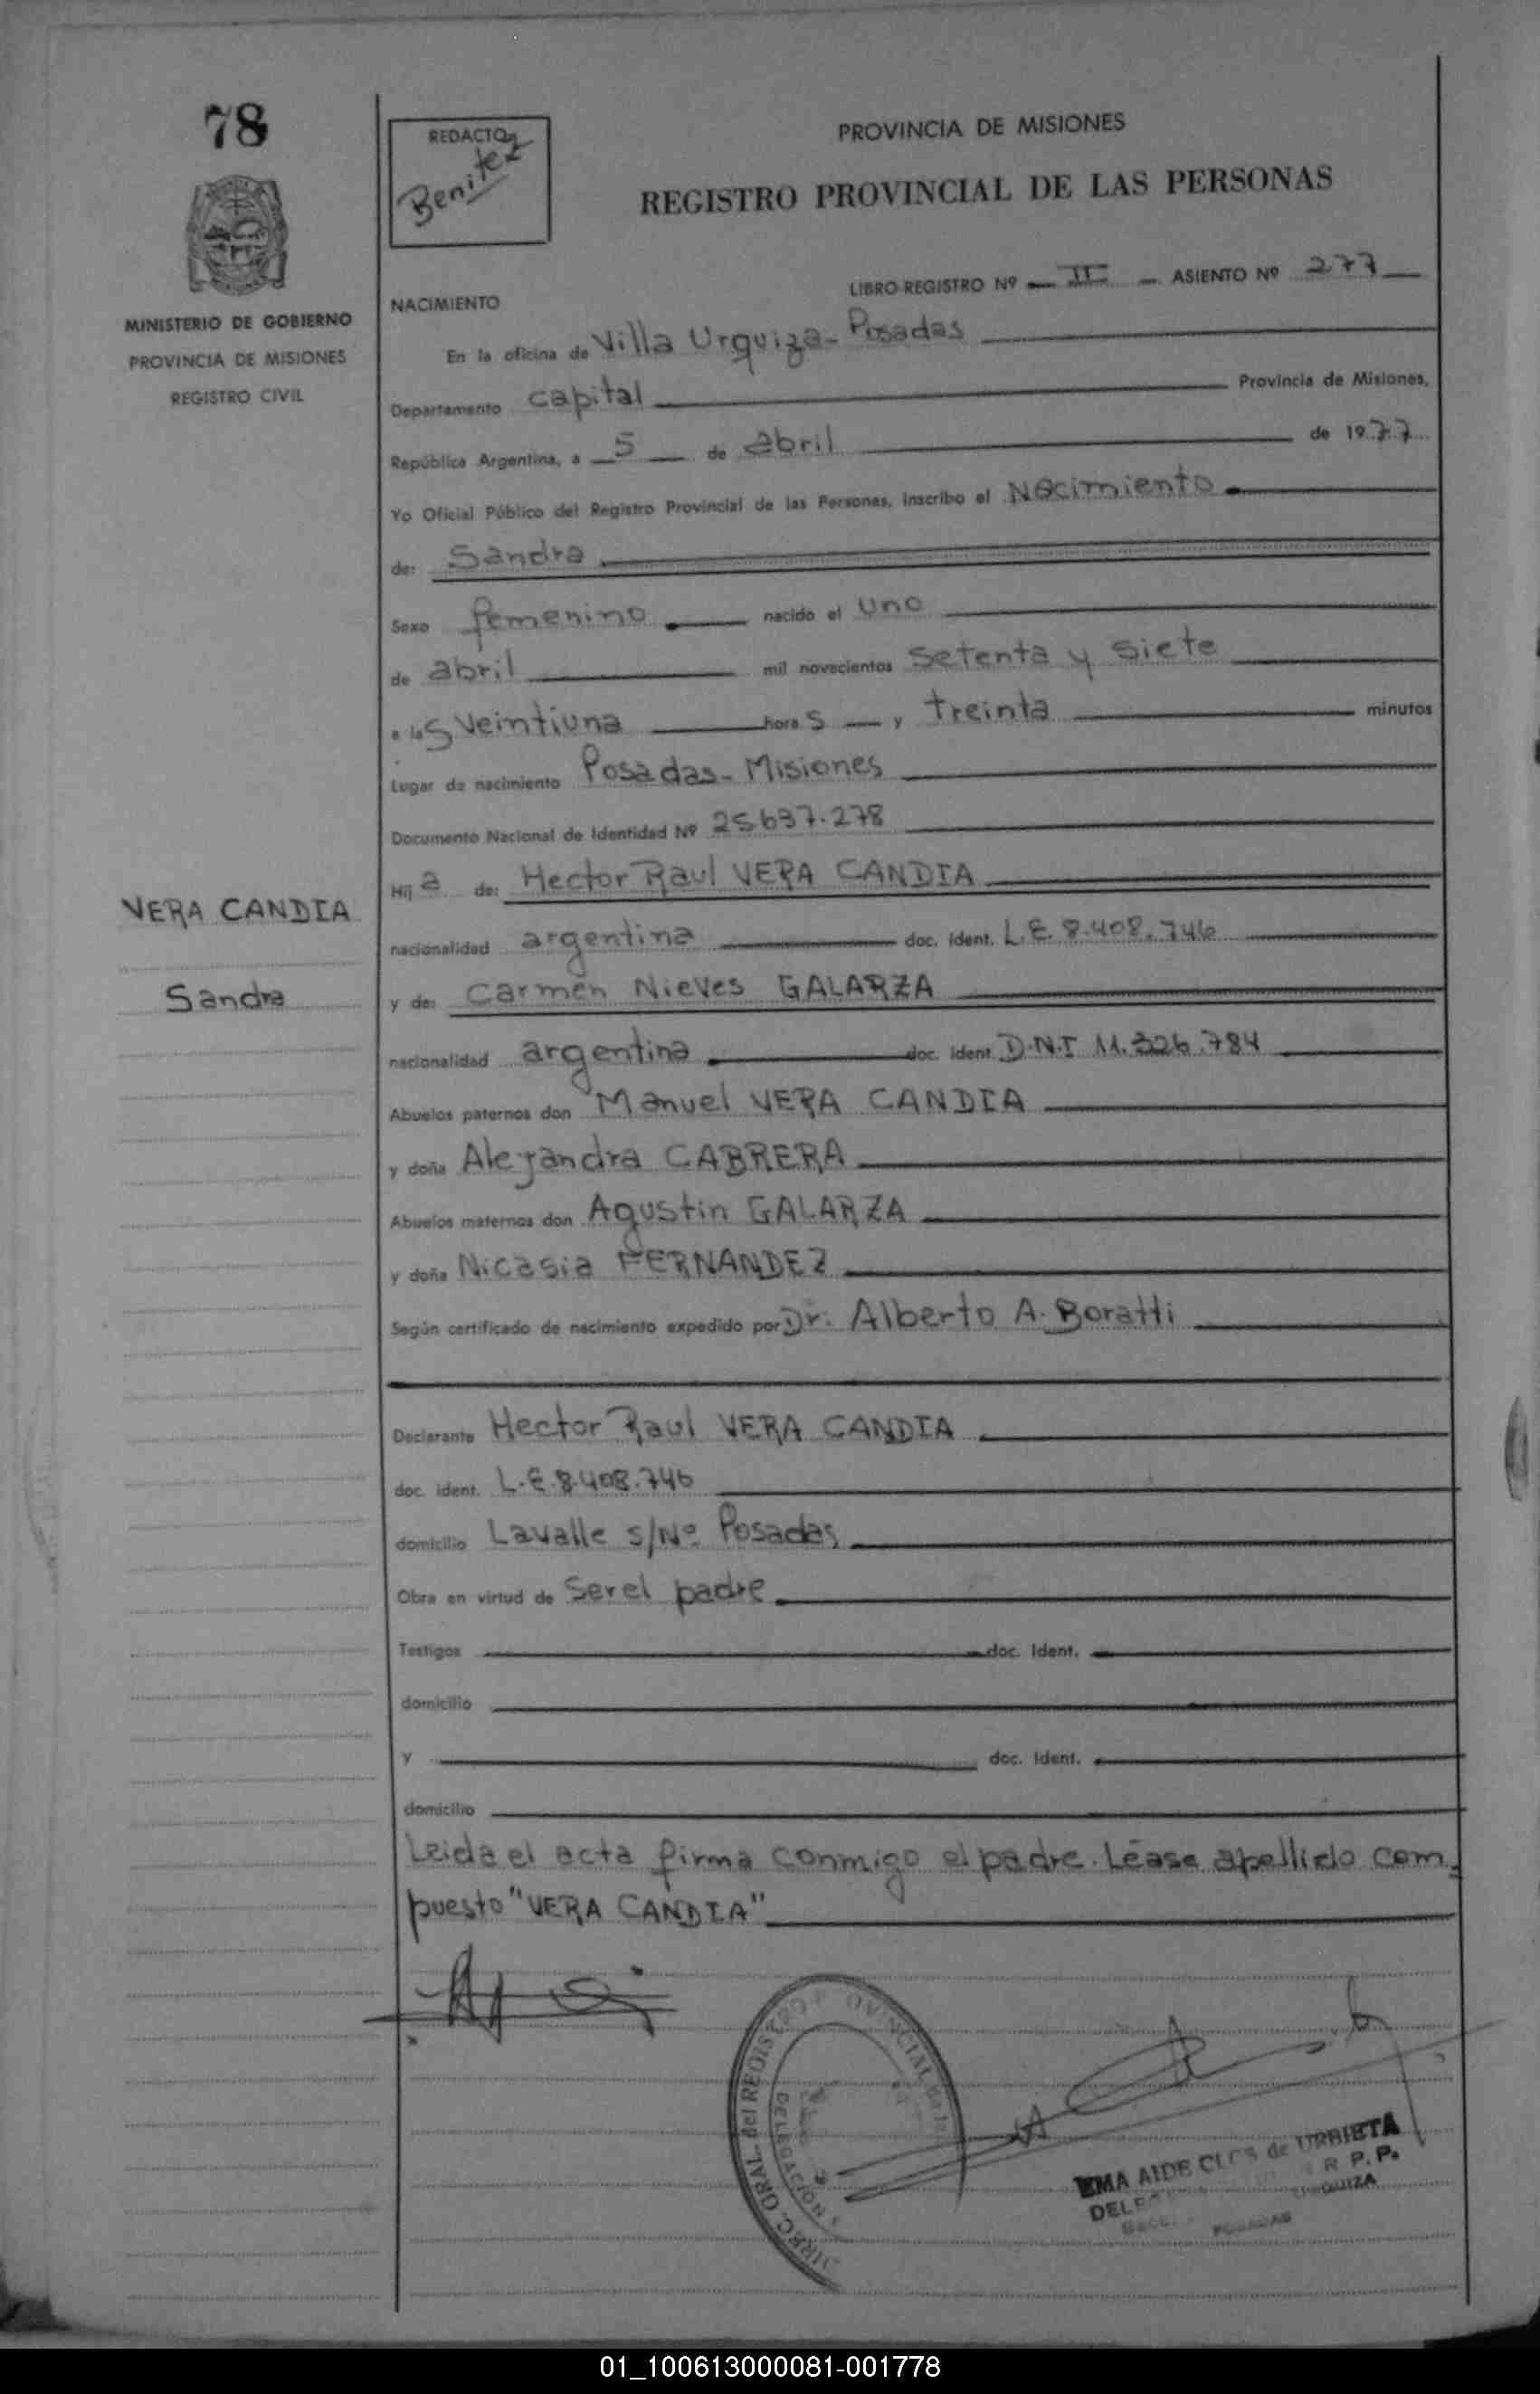 78
REDACTO
Benitez
PROVINCIA DE MISIONES
REGISTRO PROVINCIAL DE LAS PERSONAS
MINISTERIO DE GOBIERNO
PROVINCIA DE MISIONES
REGISTRO CIVIL
LIBRO-REGISTRO Nº II - ASIENTO Nº 277
NACIMIENTO
En la oficina de Villa Urquiza - Posadas
Departamento capital Provincia de Misiones,
República Argentina, a 5 de abril de 1977
Yo Oficial Público del Registro Provincial de las Personas, inscribo el Nacimiento
de: Sandra
Sexo femenino nacido el uno
de abril mil novecientos setenta y siete
a las veintiuna horas y treinta minutos
Lugar de nacimiento Posadas - Misiones
Documento Nacional de Identidad Nº 25637.278
Hija de: Hector Raul VERA CANDIA
VERA CANDIA
nacionalidad argentina doc. ident. L.E. 8.408.746
Sandra
y de: Carmen Nieves GALARZA
nacionalidad argentina doc. ident. D.N.I 11.326.784
Abuelos paternos don Manuel VERA CANDIA
y doña Alejandra CABRERA
Abuelos maternos don Agustin GALARZA
y doña Nicasia FERNANDEZ
Según certificado de nacimiento expedido por Dr. Alberto A. Boratti
Declarante Hector Raul VERA CANDIA
doc. ident. L.E. 8.408.746
domicilio Lavalle s/Nº Posadas
Obra en virtud de Ser el padre
Testigos doc. ident.
domicilio
y doc. ident.
domicilio
Leida el acta firma conmigo el padre. Léase apellido com-
puesto "VERA CANDIA"
DIREC. GRAL. del REGISTRO P OVINCIAL de las
DELEGACION
EMA AIDE de URBIETA
DELE R P.P.
QUIZA
POSADAS
01_100613000081-001778